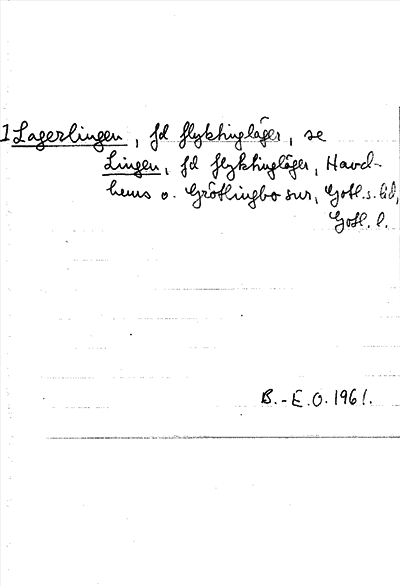 1 Lagerlingen, fd flyktingläger, se
Lingen, fd flyktingläger, Havd-
hems o. Grötlingbo snr, Gotl.s. hd,
Gotl. l.
B.-E.O. 1961.